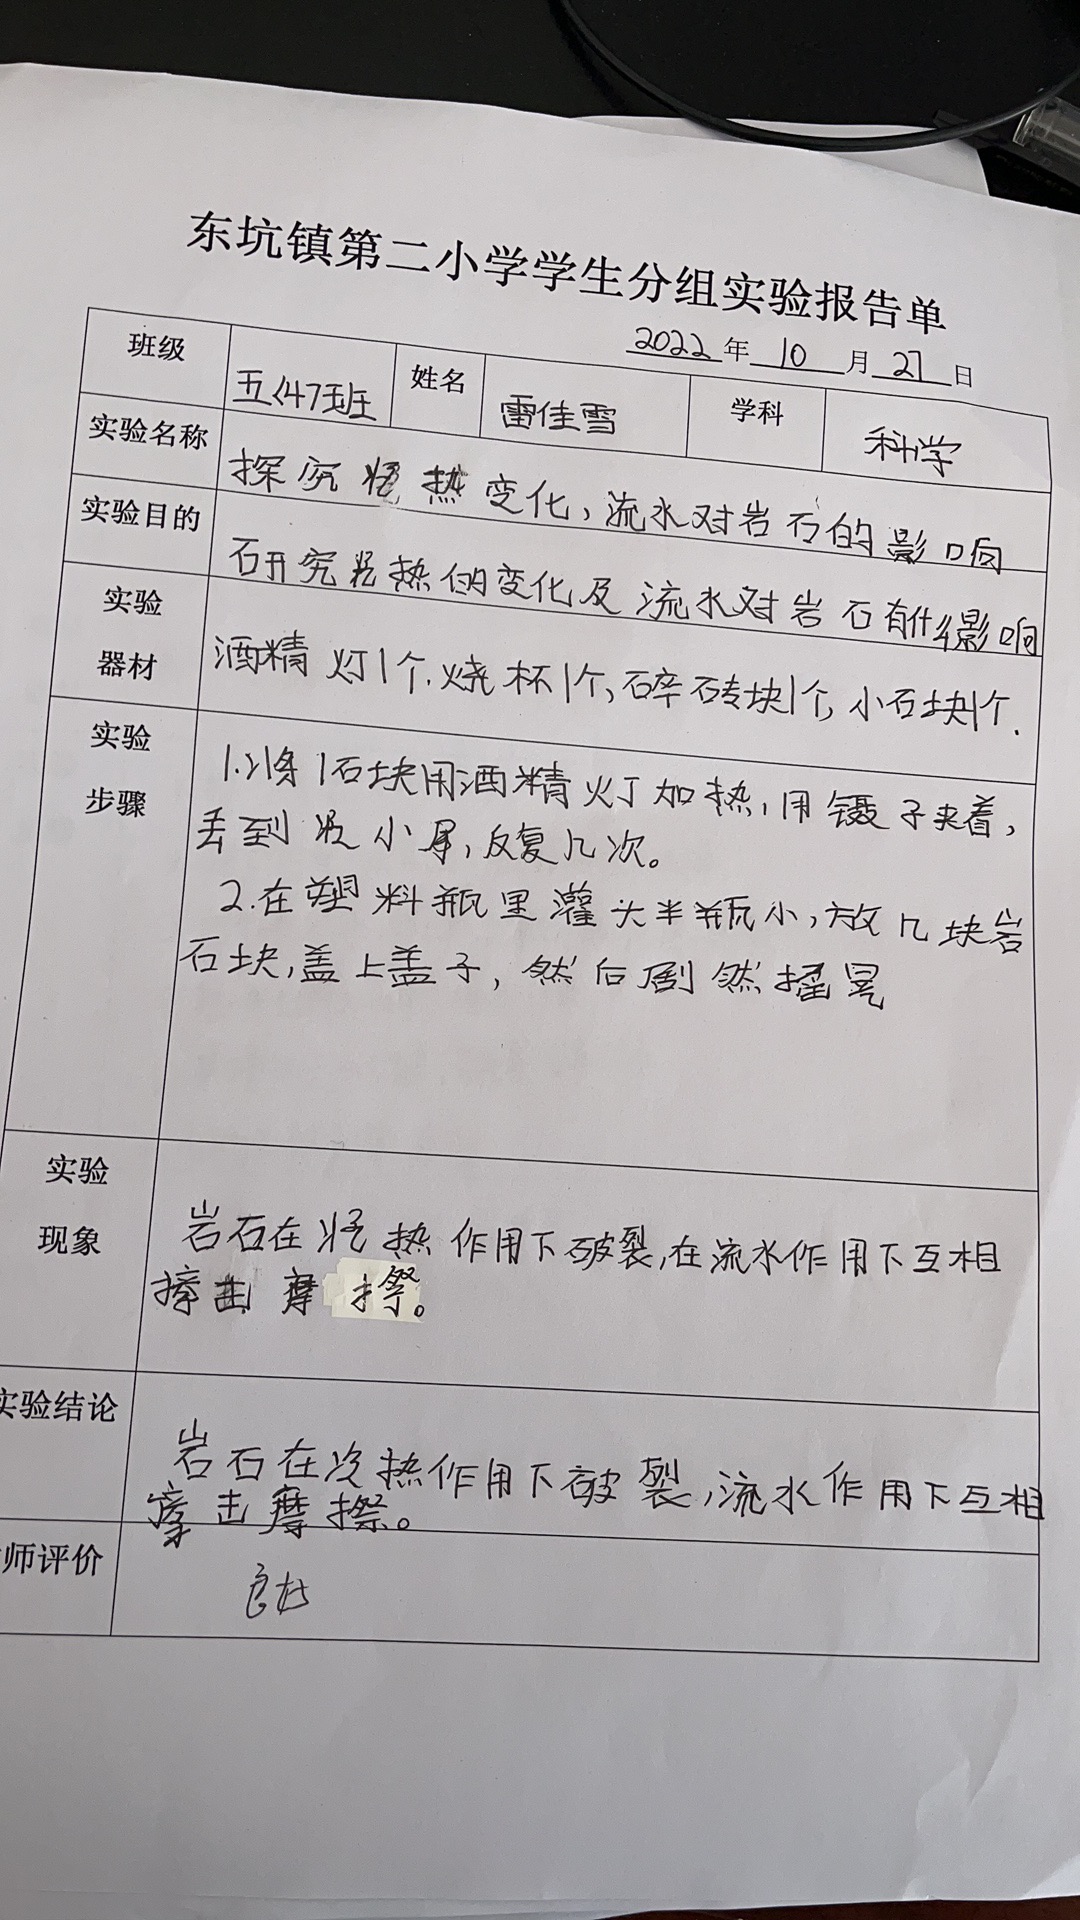 东坑镇第二小学学生分组实验报告单
2022年10月27日
班级 五<47班 姓名 雷佳雪 学科 科学
实验名称 探究 热变化、流水对岩石的影响
实验目的 研究 热的变化及流水对岩石有什么影响
实验器材 酒精灯1个.烧杯1个,碎砖块1个,小石块1个.
实验步骤
1.将1石块用酒精灯加热,用镊子夹着,
丢到 小 ,反复几次。
2.在塑料瓶里灌 半瓶小,放几块岩
石块,盖上盖子,然后剧然摇晃
实验现象
岩石在 热作用下破裂,在流水作用下互相
撞击摩擦。
实验结论
岩石在冷热作用下破裂,流水作用下互相
撞击摩擦。
师评价 良好